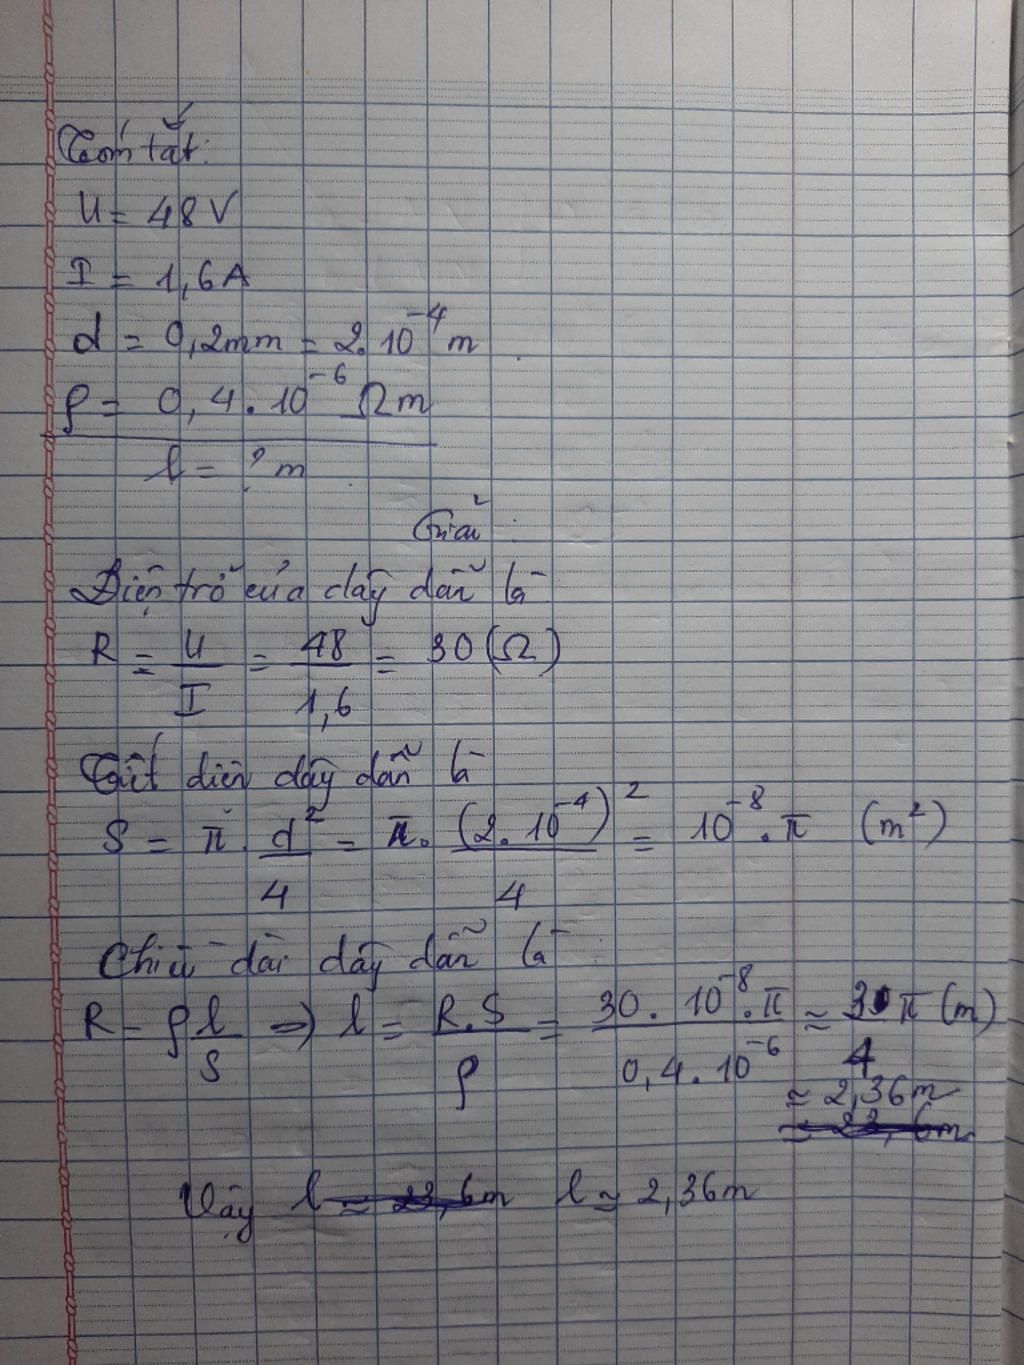 Tóm tắt:
U = 48 V
I = 1,6A
d = 0,2mm = 2.10⁻⁴ m
ρ = 0,4.10⁻⁶ Ωm
l = ? m
Giải:
Điện trở của dây dẫn là
R = U/I = 48/1,6 = 30 (Ω)
Tiết diện dây dẫn là
S = π.d²/4 = π.(2.10⁻⁴)²/4 = 10⁻⁸.π (m²)
Chiều dài dây dẫn là:
R = ρ l/S ⇒ l = R.S/ρ = 30.10⁻⁸.π/0,4.10⁻⁶ ≈ 3π/4 (m)
≈ 2,36m
≈ 23,6m
Vậy l ≈ 23,6m l ≈ 2,36m